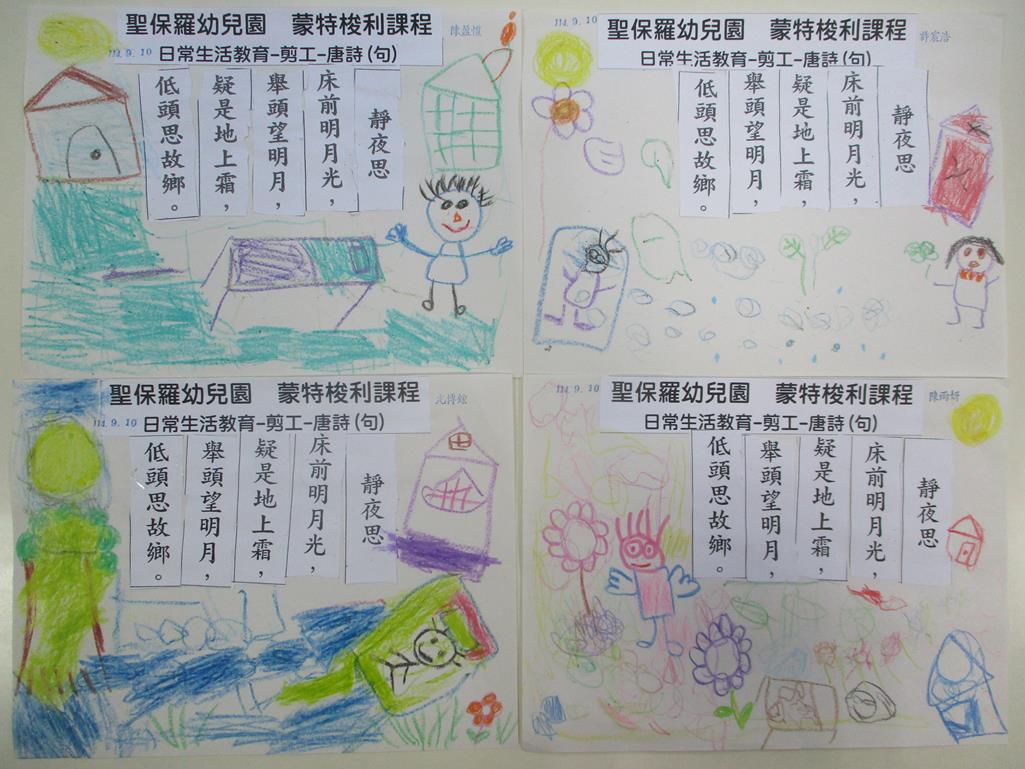 聖保羅幼兒園 蒙特梭利課程
114.9.10
日常生活教育-剪工-唐詩(句)
靜夜思
床前明月光，
舉頭望明月，
疑是地上霜，
低頭思故鄉。
聖保羅幼兒園 蒙特梭利課程
114.9.10
許宸浩
日常生活教育-剪工-唐詩(句)
靜夜思
床前明月光，
疑是地上霜，
舉頭望明月，
低頭思故鄉。
聖保羅幼兒園 蒙特梭利課程
114.9.10
日常生活教育-剪工-唐詩(句)
靜夜思
床前明月光，
疑是地上霜，
舉頭望明月，
低頭思故鄉。
聖保羅幼兒園 蒙特梭利課程
114.9.10
陳雨妍
日常生活教育-剪工-唐詩(句)
靜夜思
床前明月光，
疑是地上霜，
舉頭望明月，
低頭思故鄉。